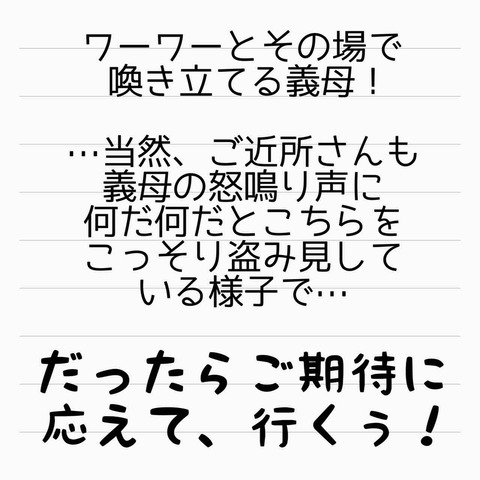 ワーワーとその場で
喚き立てる義母！
…当然、ご近所さんも
義母の怒鳴り声に
何だ何だとこちらを
こっそり盗み見して
いる様子で…
だったらご期待に
応えて、行くぅ！